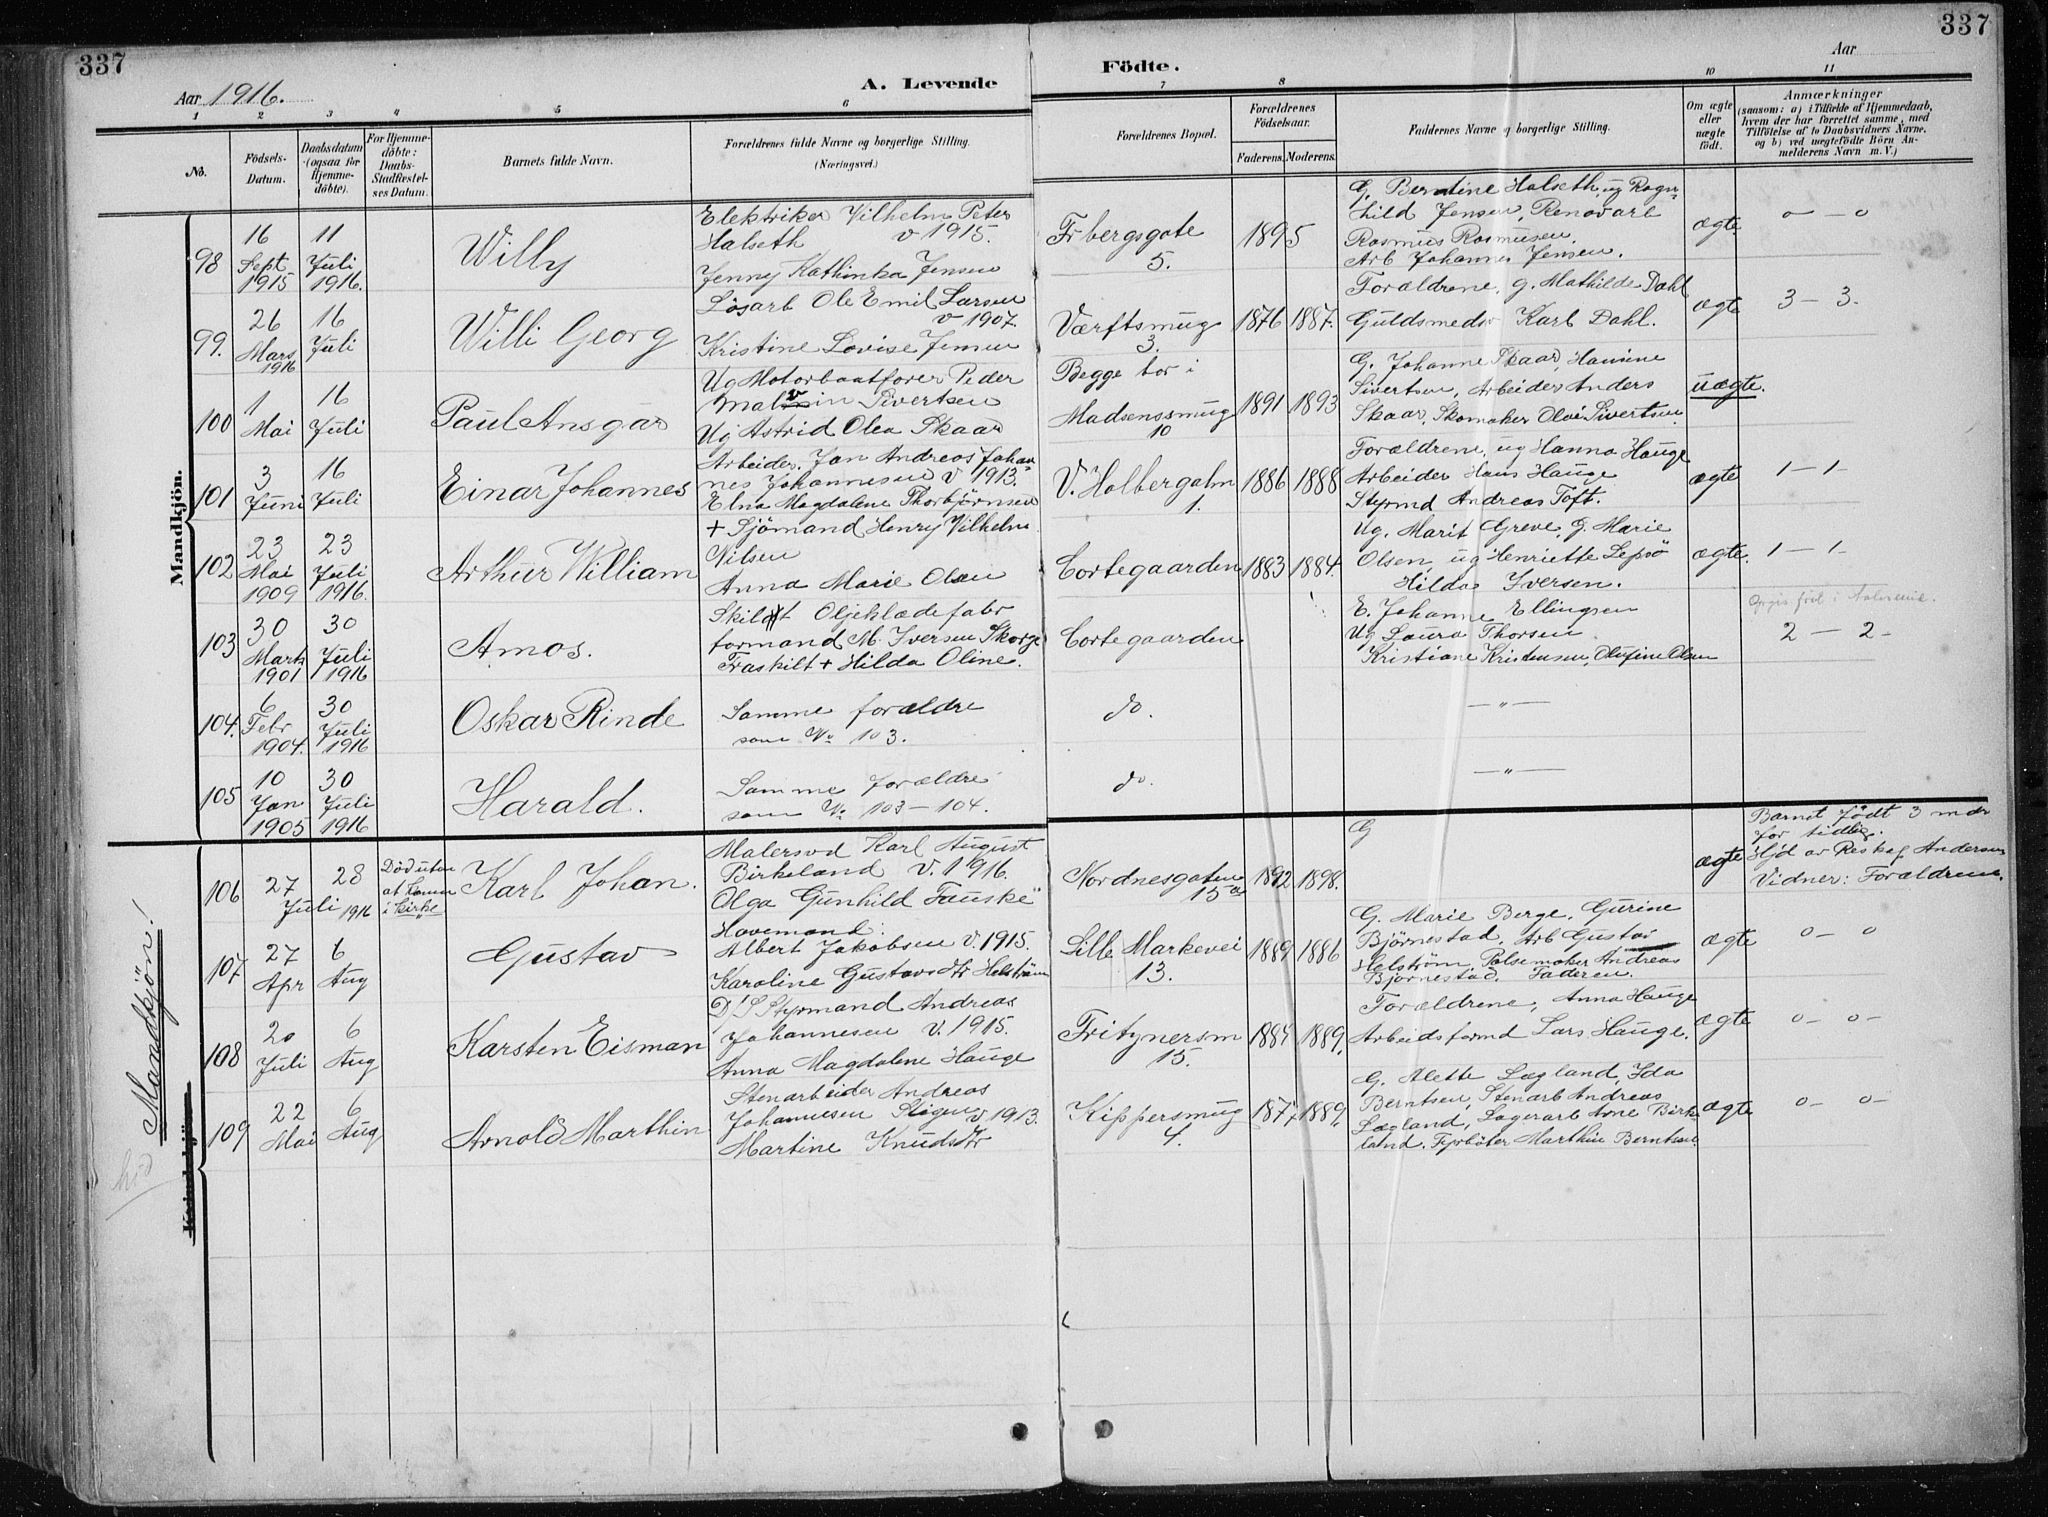 337
337
Aar 1916.
A. Levende
Födte.
Aar
1
2
3
4
5
6
7
8
10
11
No.
Födsels-
Datum.
Daabsdatum
(ogsaa for
Hjemme-
döbte).
For Hjemme-
döbte:
Daabs-
Stadfestel-
ses Datum.
Barnets fulde Navn.
Forældrenes fulde Navne og borgerlige Stilling.
(Næringsvei.)
Forældrenes Bopæl.
Forældrenes
Födselsaar.
Faderens.
Moderens.
Faddernes Navne og borgerlige Stilling.
Om ægte
eller
uægte
födt.
Anmærkninger
(saasom: a) i Tilfælde af Hjemmedaab,
hvem der har forrettet samme, med
Tilföielse af to Daabsvidners Navne,
og b) ved uægtefödte Börn An-
melderens Navn m. V.)
Mandkjön.
98
16
Sept
1915
11
Juli
1916.
Willy
Elektriker Vilhelm Peter
Halseth v 1915.
Jenny Kathinka Jensen
Fr bergsgate
5.
1895
G. Berntine Halseth ug Ragn-
hild Jensen, Renovarb
Rasmus Rasmusen,
Arb Johannes Jensen.
ægte.
0 — 0
99.
26
Mars
1916
16
Juli
Willi Georg
Lösarb Ole Emil Larsen
v 1907.
Kristine Lovise Jensen
Værftsmug
3.
1876
1887.
Forældrene, g. Mathilde Dahl
Guldsmedsv Karl Dahl.
ægte
3 — 3.
100
1
Mai
16
Juli
Paul Ansgar
Ug Motorbaatförer Peder
Malvin Sivertsen
Ug Astrid Olea Skaar
Begge bor i
Madsensmug
10
1891
1893
G. Johanne Skaar, Hansine
Sivertsen, Arbeider Anders
Skaar, Skomaker Olai Sivertsen
uægte.
101
3
Juni
16
Juli
Einar Johannes
Arbeider Jan Andreas Johan-
nes Johannesen v 1913.
Elna Magdalene Thorbjørnsen
V. Holbergalm
1.
1886
1888
Forældrene, ug Hanna Hauge
Arbeider Hans Hauge
Styrmd Andreas Toft.
ægte
1 — 1-
102
23
Mai
1909
23
Juli
1916.
Arthur William
+ Sjömand Henry Vilhelm
Nilsen
Anna Marie Olsen
Cortegaarden
1883
1884.
Ug. Marit Greve, G. Marie
Olsen, ug Henriette Lepsö
Hilda Iversen.
ægte.
1 — 1-
103
30
Marts
1901
30
Juli
1916
Amos.
Skilt Oljeklædefabr
formand M. Iversen Skorge
Fraskilt + Hilda Oline.
Cortegaarden
E. Johanne Ellingsen
Ug Laura Thorsen
Kristiane Kristensen, Olufine Olsen
2 — 2-
104.
6
Febr
1904.
30
Juli
1916
Oskar Rinde
Samme forældre
som No 103.
do.
— " —
105
10
Jan
1905
30
Juli
1916
Harald.
Samme forældre
som No 103-104.
do.
— " —
106
27
Juli
28
1916
Död uten
at komme
i kirke
Karl Johan.
Malersvd Karl August
Birkeland v. 1916.
Olga Gunhild Fauske
Nordnesgaten
15a
1892
1898.
G
ægte
Barnet födt 3 mdr
for tidlig.
Hjd av Reskap Andersen
Vidner: Forældrene.
107
27
Apr
6
Aug
Gustav
Havemand:
Albert Jakobsen v. 1915.
Karoline Gustavsdtr Helström
Lille Markevei
13.
1889
1886
G. Marie Berge, Gurine
Björnestad, Arb Gustav
Helström, Pølsemaker Andreas
Björnestad. Faderen.
ægte
0 — 0
108
20
Juli
6
Aug
Karsten Eisman
D/S Styrmand Andreas
Johannesen v. 1915.
Anna Magdalene Hauge
Fritznersm
15.
1884
1889.
Forældrene, Anna Hauge
Arbeidsformd Lars Hauge.
ægte
0 — 0-
109
22
Mai
6
Aug
Arnold Marthin
Stenarbeider Andreas
Johannesen Stigen v 1913.
Martine Knudsdtr
Kippersmug
4.
1877
1889.
G. Alette Lægland, Ida
Berntsen, Stenarb Andreas
Lægland, Lagerarb Arne Birke-
land. Fyrböter Marthin Berntsen.
ægte
0 — 0-
Mandkjön!
Kvindekjön.